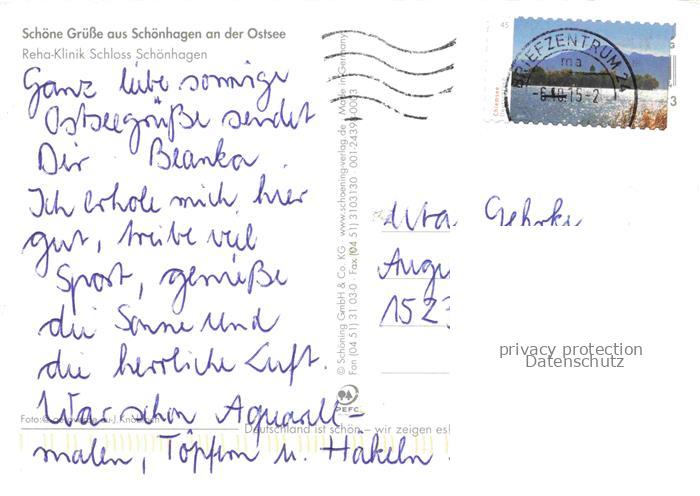 Schöne Grüße aus Schönhagen an der Ostsee
Reha-Klinik Schloss Schönhagen
Ganz liebe sonnige
Ostseegrüße sendet
Dir Bianka.
Ich erhole mich hier
gut, treibe viel
Sport, genieße
die Sonne und
die herrliche Luft.
War schon Aquarell-
malen, Töpfern u. Häkeln.
Foto:
Deutschland ist schön – wir zeigen es!
© Schöning GmbH & Co. KG · www.schoening-verlag.de · Made in Germany
Fon (04 51) 31 03-0 · Fax (04 51) 3103130
PEFC
45
Chiemsee
BRIEFZENTRUM 24
ma
15-2
Uta Gehrke
Augu
1523
privacy protection
Datenschutz